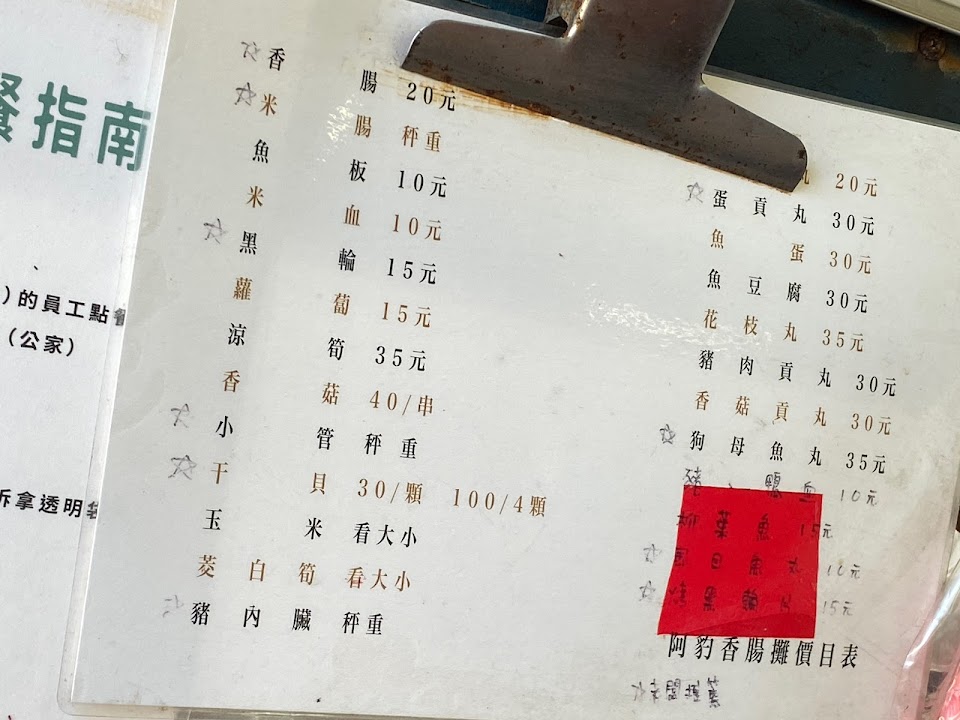 餐指南
)的員工點餐
(公家)
拆拿透明袋
☆香腸 20元
☆米腸 秤重
魚板 10元
米血 10元
☆黑輪 15元
蘿蔔 15元
涼筍 35元
香菇 40/串
☆小管 秤重
☆干貝 30/顆 100/4顆
玉米 看大小
茭白筍 看大小
☆豬內臟 秤重
丸 20元
☆蛋貢丸 30元
魚蛋 30元
魚豆腐 30元
花枝丸 35元
豬肉貢丸 30元
香菇貢丸 30元
☆狗母魚丸 35元
豬、鴨血 10元
柳葉魚 15元
☆虱目魚丸 10元
☆燒黑輪片 15元
阿豹香腸攤價目表
☆老闆推薦